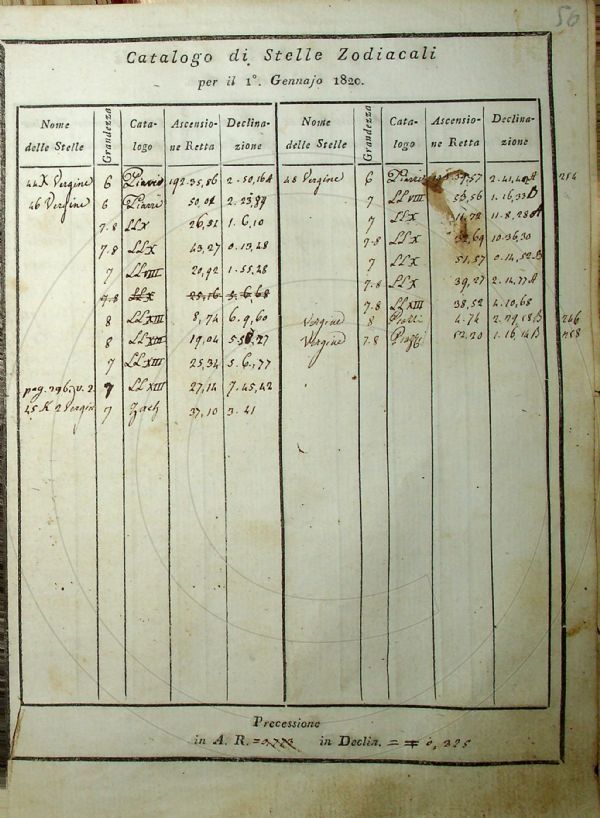 56
Catalogo di Stelle Zodiacali
per il 1°. Gennajo 1820.
Nome delle Stelle Grandezza Catalogo Ascensione Retta Declinazione Nome delle Stelle Grandezza Catalogo Ascensione Retta Declinazione
44 X Vergine 6 192.35,86 2.50,16 A
46 Vergine 6 50,01
7.8 LL X 26,81 1.6,10
7.8 LL X 43,27 0.13,48
7 LL VIII 20,92 1.55,28
7.8 LL X
8 LL XIII 8,74 6.9,60
8 LL XIII 19,04
7 LL XIII 25,34 5.6,77
pag. 7 LL XIII 27,14 7.45,42
45 K 2 Vergine 7 Zach 37,10 3.41
48 Vergine 6 2.41,40 A 254
7 LL VIII 56,56 1.16,33 B
7 LL X 11,72 11.8,28 A
7.8 LL X 10.36,30
7 LL X 51,57 0.14,52 B
7.8 LL X 39,27 2.14,77 A
7.8 LL XIII 38,52 4.10,68
Vergine 8 Piazzi 4,74 246
Vergine 7.8 Piazzi 52,20 1.16,14 B
Precessione
in A. R. = in Declin. = ∓ 0,325